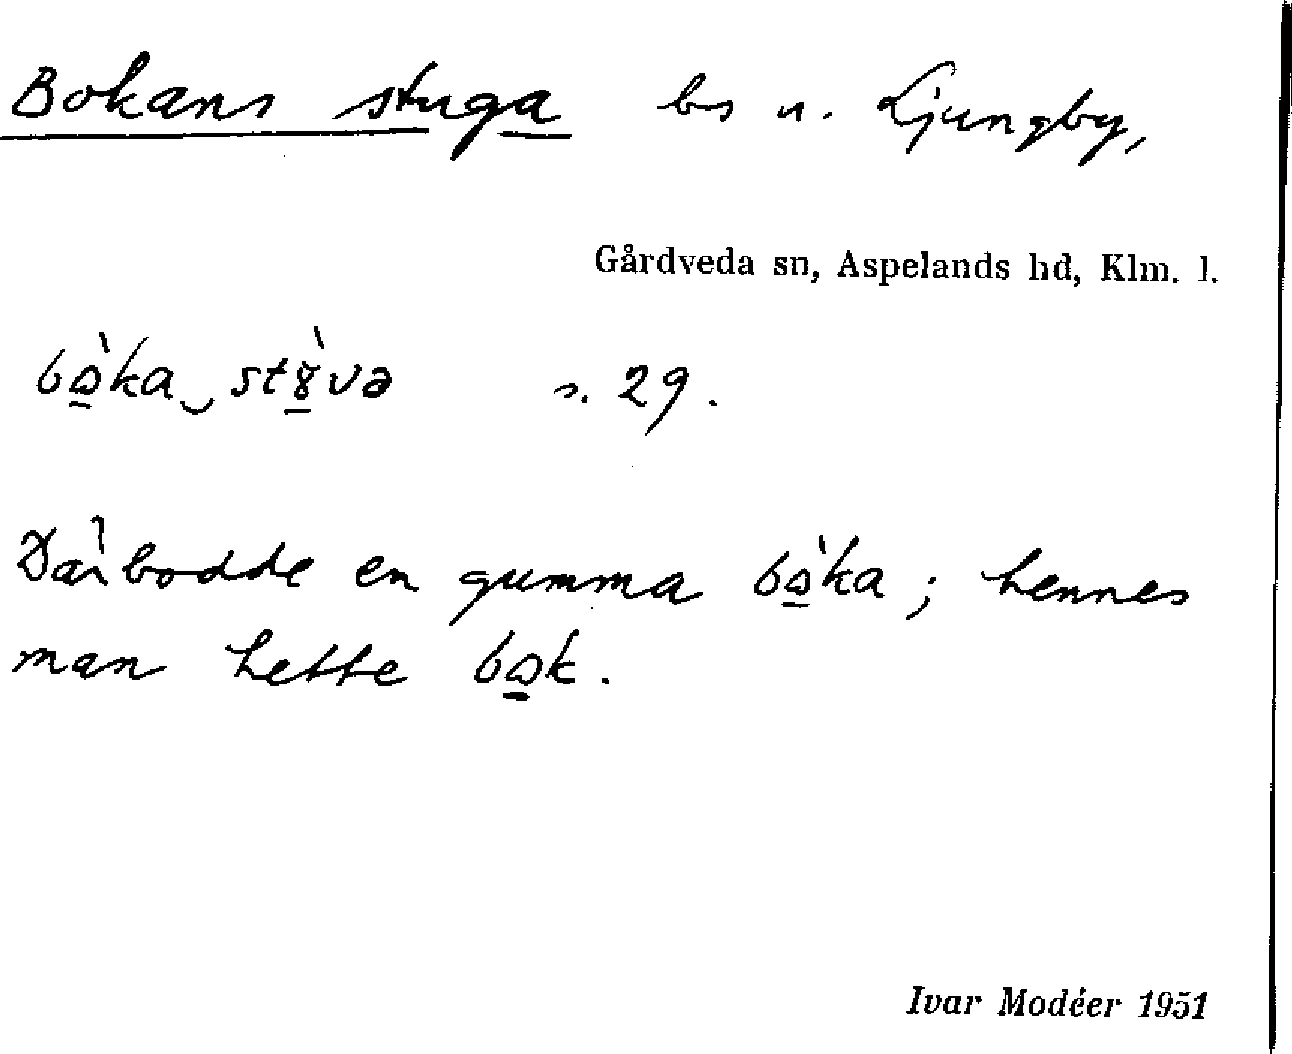 Bokans stuga bs u. Ljungby,
Gårdveda sn, Aspelands hd, Klm. l.
bɷ̠̀ka‿st8̠̀və s. 29.
Där bodde en gumma bɷ̠̀ka; hennes
man hette bɷ̠k.
Ivar Modéer 1951